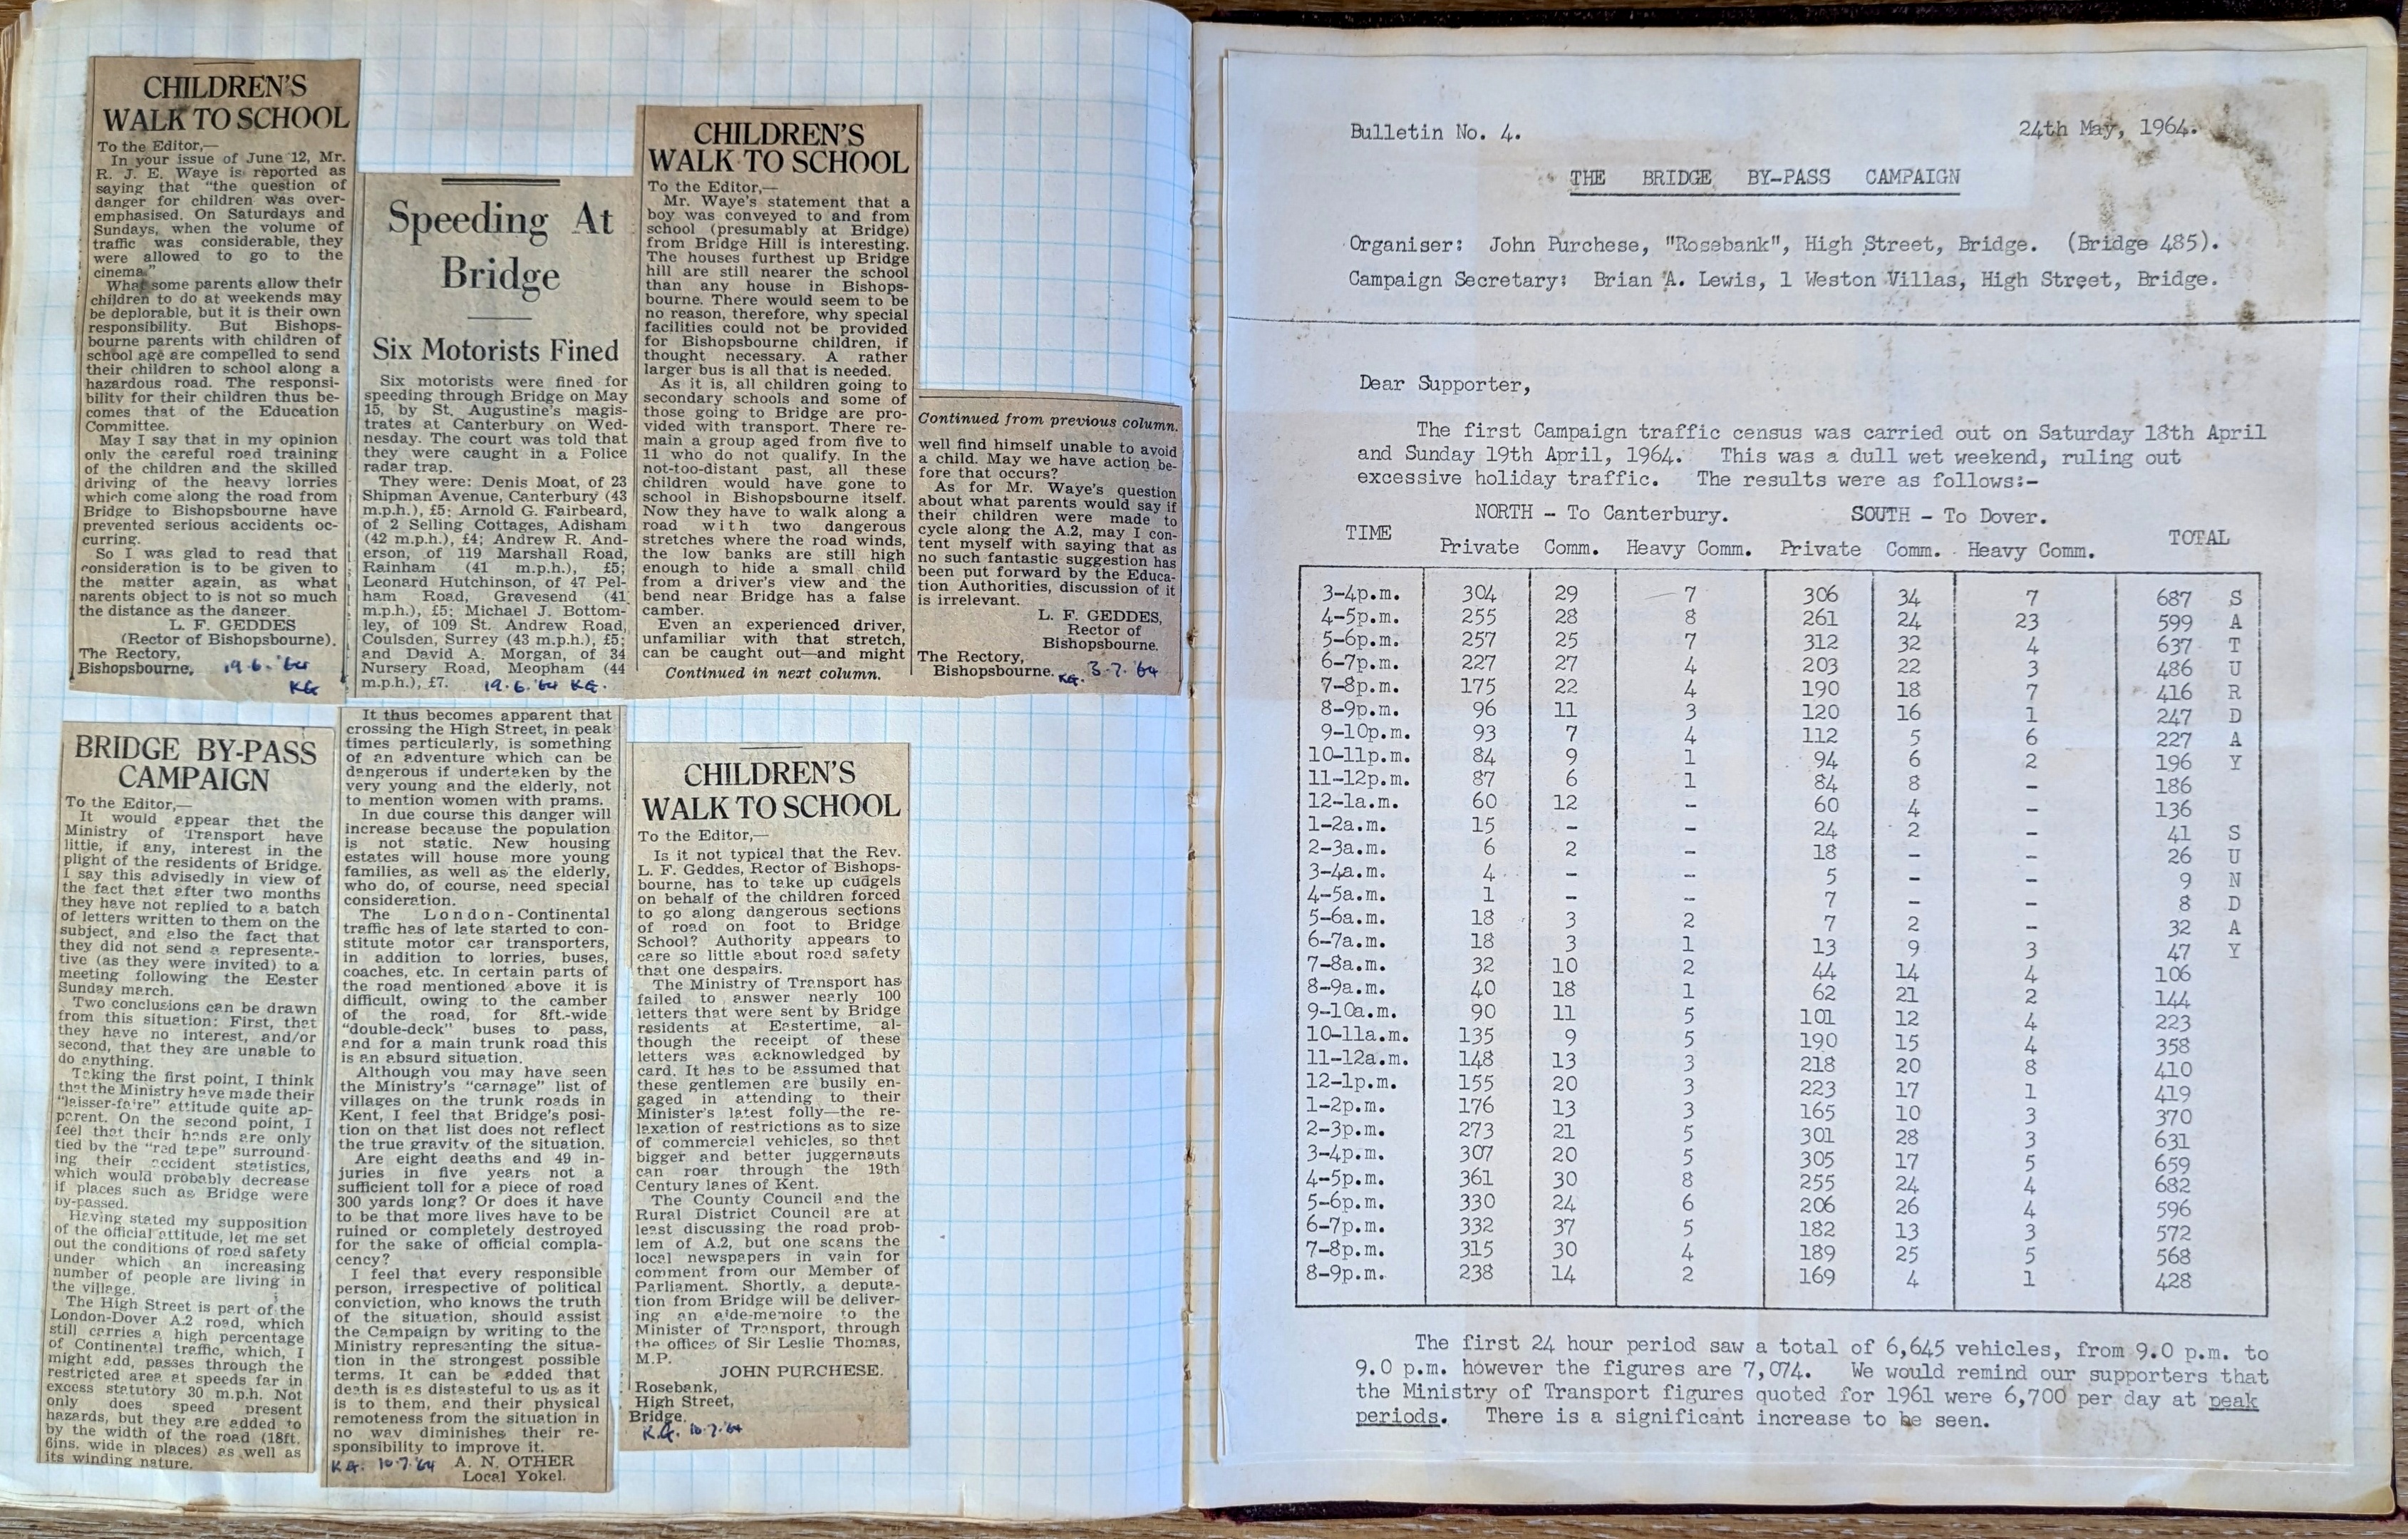 CHILDREN'S
WALK TO SCHOOL
To the Editor,—
In your issue of June 12, Mr.
R. J. E. Waye is reported as
saying that "the question of
danger for children was over-
emphasised. On Saturdays and
Sundays, when the volume of
traffic was considerable, they
were allowed to go to the
cinema."
What some parents allow their
children to do at weekends may
be deplorable, but it is their own
responsibility. But Bishops-
bourne parents with children of
school age are compelled to send
their children to school along a
hazardous road. The responsi-
bility for their children thus be-
comes that of the Education
Committee.
May I say that in my opinion
only the careful road training
of the children and the skilled
driving of the heavy lorries
which come along the road from
Bridge to Bishopsbourne have
prevented serious accidents oc-
curring.
So I was glad to read that
consideration is to be given to
the matter again, as what
parents object to is not so much
the distance as the danger.
L. F. GEDDES
(Rector of Bishopsbourne).
The Rectory,
Bishopsbourne.
19.6.'64
KG
Speeding At
Bridge
Six Motorists Fined
Six motorists were fined for
speeding through Bridge on May
15, by St. Augustine's magis-
trates at Canterbury on Wed-
nesday. The court was told that
they were caught in a Police
radar trap.
They were: Denis Moat, of 23
Shipman Avenue, Canterbury (43
m.p.h.), £5; Arnold G. Fairbeard,
of 2 Selling Cottages, Adisham
(42 m.p.h.), £4; Andrew R. And-
erson, of 119 Marshall Road,
Rainham (41 m.p.h.), £5;
Leonard Hutchinson, of 47 Pel-
ham Road, Gravesend (41
m.p.h.), £5; Michael J. Bottom-
ley, of 109 St. Andrew Road,
Coulsden, Surrey (43 m.p.h.), £5;
and David A. Morgan, of 34
Nursery Road, Meopham (44
m.p.h.), £7.
19.6.'64 KG.
CHILDREN'S
WALK TO SCHOOL
To the Editor,—
Mr. Waye's statement that a
boy was conveyed to and from
school (presumably at Bridge)
from Bridge Hill is interesting.
The houses furthest up Bridge
hill are still nearer the school
than any house in Bishops-
bourne. There would seem to be
no reason, therefore, why special
facilities could not be provided
for Bishopsbourne children, if
thought necessary. A rather
larger bus is all that is needed.
As it is, all children going to
secondary schools and some of
those going to Bridge are pro-
vided with transport. There re-
main a group aged from five to
11 who do not qualify. In the
not-too-distant past, all these
children would have gone to
school in Bishopsbourne itself.
Now they have to walk along a
road with two dangerous
stretches where the road winds,
the low banks are still high
enough to hide a small child
from a driver's view and the
bend near Bridge has a false
camber.
Even an experienced driver,
unfamiliar with that stretch,
can be caught out—and might
Continued in next column.
Continued from previous column.
well find himself unable to avoid
a child. May we have action be-
fore that occurs?
As for Mr. Waye's question
about what parents would say if
their children were made to
cycle along the A.2, may I con-
tent myself with saying that as
no such fantastic suggestion has
been put forward by the Educa-
tion Authorities, discussion of it
is irrelevant.
L. F. GEDDES,
Rector of
Bishopsbourne.
The Rectory,
Bishopsbourne.
KG. 3-7.'64
BRIDGE BY-PASS
CAMPAIGN
To the Editor,—
It would appear that the
Ministry of Transport have
little, if any, interest in the
plight of the residents of Bridge.
I say this advisedly in view of
the fact that after two months
they have not replied to a batch
of letters written to them on the
subject, and also the fact that
they did not send a representa-
tive (as they were invited) to a
meeting following the Easter
Sunday march.
Two conclusions can be drawn
from this situation: First, that
they have no interest, and/or
second, that they are unable to
do anything.
Taking the first point, I think
that the Ministry have made their
"laisser-faire" attitude quite ap-
parent. On the second point, I
feel that their hands are only
tied by the "red tape" surround-
ing their accident statistics,
which would probably decrease
if places such as Bridge were
by-passed.
Having stated my supposition
of the official attitude, let me set
out the conditions of road safety
under which an increasing
number of people are living in
the village.
The High Street is part of the
London-Dover A.2 road, which
still carries a high percentage
of Continental traffic, which, I
might add, passes through the
restricted area at speeds far in
excess statutory 30 m.p.h. Not
only does speed present
hazards, but they are added to
by the width of the road (18ft.
6ins. wide in places) as well as
its winding nature.
It thus becomes apparent that
crossing the High Street, in peak
times particularly, is something
of an adventure which can be
dangerous if undertaken by the
very young and the elderly, not
to mention women with prams.
In due course this danger will
increase because the population
is not static. New housing
estates will house more young
families, as well as the elderly,
who do, of course, need special
consideration.
The London-Continental
traffic has of late started to con-
stitute motor car transporters,
in addition to lorries, buses,
coaches, etc. In certain parts of
the road mentioned above it is
difficult, owing to the camber
of the road, for 8ft.-wide
"double-deck" buses to pass,
and for a main trunk road this
is an absurd situation.
Although you may have seen
the Ministry's "carnage" list of
villages on the trunk roads in
Kent, I feel that Bridge's posi-
tion on that list does not reflect
the true gravity of the situation.
Are eight deaths and 49 in-
juries in five years not a
sufficient toll for a piece of road
300 yards long? Or does it have
to be that more lives have to be
ruined or completely destroyed
for the sake of official compla-
cency?
I feel that every responsible
person, irrespective of political
conviction, who knows the truth
of the situation, should assist
the Campaign by writing to the
Ministry representing the situa-
tion in the strongest possible
terms. It can be added that
death is as distasteful to us as it
is to them, and their physical
remoteness from the situation in
no way diminishes their re-
sponsibility to improve it.
A. N. OTHER
Local Yokel.
KG. 10.7.'64
CHILDREN'S
WALK TO SCHOOL
To the Editor,—
Is it not typical that the Rev.
L. F. Geddes, Rector of Bishops-
bourne, has to take up cudgels
on behalf of the children forced
to go along dangerous sections
of road on foot to Bridge
School? Authority appears to
care so little about road safety
that one despairs.
The Ministry of Transport has
failed to answer nearly 100
letters that were sent by Bridge
residents at Eastertime, al-
though the receipt of these
letters was acknowledged by
card. It has to be assumed that
these gentlemen are busily en-
gaged in attending to their
Minister's latest folly—the re-
laxation of restrictions as to size
of commercial vehicles, so that
bigger and better juggernauts
can roar through the 19th
Century lanes of Kent.
The County Council and the
Rural District Council are at
least discussing the road prob-
lem of A.2, but one scans the
local newspapers in vain for
comment from our Member of
Parliament. Shortly, a deputa-
tion from Bridge will be deliver-
ing an aide-memoire to the
Minister of Transport, through
the offices of Sir Leslie Thomas,
M.P.
JOHN PURCHESE.
Rosebank,
High Street,
Bridge.
K.G. 10.7.'64
Bulletin No. 4. 24th May, 1964.
THE BRIDGE BY-PASS CAMPAIGN
Organiser: John Purchese, "Rosebank", High Street, Bridge. (Bridge 485).
Campaign Secretary: Brian A. Lewis, 1 Weston Villas, High Street, Bridge.
Dear Supporter,
The first Campaign traffic census was carried out on Saturday 18th April
and Sunday 19th April, 1964. This was a dull wet weekend, ruling out
excessive holiday traffic. The results were as follows:-
NORTH - To Canterbury. SOUTH - To Dover.
TIME Private Comm. Heavy Comm. Private Comm. Heavy Comm. TOTAL
3-4p.m. 304 29 7 306 34 7 687 S
4-5p.m. 255 28 8 261 24 23 599 A
5-6p.m. 257 25 7 312 32 4 637 T
6-7p.m. 227 27 4 203 22 3 486 U
7-8p.m. 175 22 4 190 18 7 416 R
8-9p.m. 96 11 3 120 16 1 247 D
9-10p.m. 93 7 4 112 5 6 227 A
10-11p.m. 84 9 1 94 6 2 196 Y
11-12p.m. 87 6 1 84 8 - 186
12-1a.m. 60 12 - 60 4 - 136
1-2a.m. 15 - - 24 2 - 41 S
2-3a.m. 6 2 - 18 - - 26 U
3-4a.m. 4 - - 5 - - 9 N
4-5a.m. 1 - - 7 - - 8 D
5-6a.m. 18 3 2 7 2 - 32 A
6-7a.m. 18 3 1 13 9 3 47 Y
7-8a.m. 32 10 2 44 14 4 106
8-9a.m. 40 18 1 62 21 2 144
9-10a.m. 90 11 5 101 12 4 223
10-11a.m. 135 9 5 190 15 4 358
11-12a.m. 148 13 3 218 20 8 410
12-1p.m. 155 20 3 223 17 1 419
1-2p.m. 176 13 3 165 10 3 370
2-3p.m. 273 21 5 301 28 3 631
3-4p.m. 307 20 5 305 17 5 659
4-5p.m. 361 30 8 255 24 4 682
5-6p.m. 330 24 6 206 26 4 596
6-7p.m. 332 37 5 182 13 3 572
7-8p.m. 315 30 4 189 25 5 568
8-9p.m. 238 14 2 169 4 1 428
The first 24 hour period saw a total of 6,645 vehicles, from 9.0 p.m. to
9.0 p.m. however the figures are 7,074. We would remind our supporters that
the Ministry of Transport figures quoted for 1961 were 6,700 per day at peak
periods. There is a significant increase to be seen.